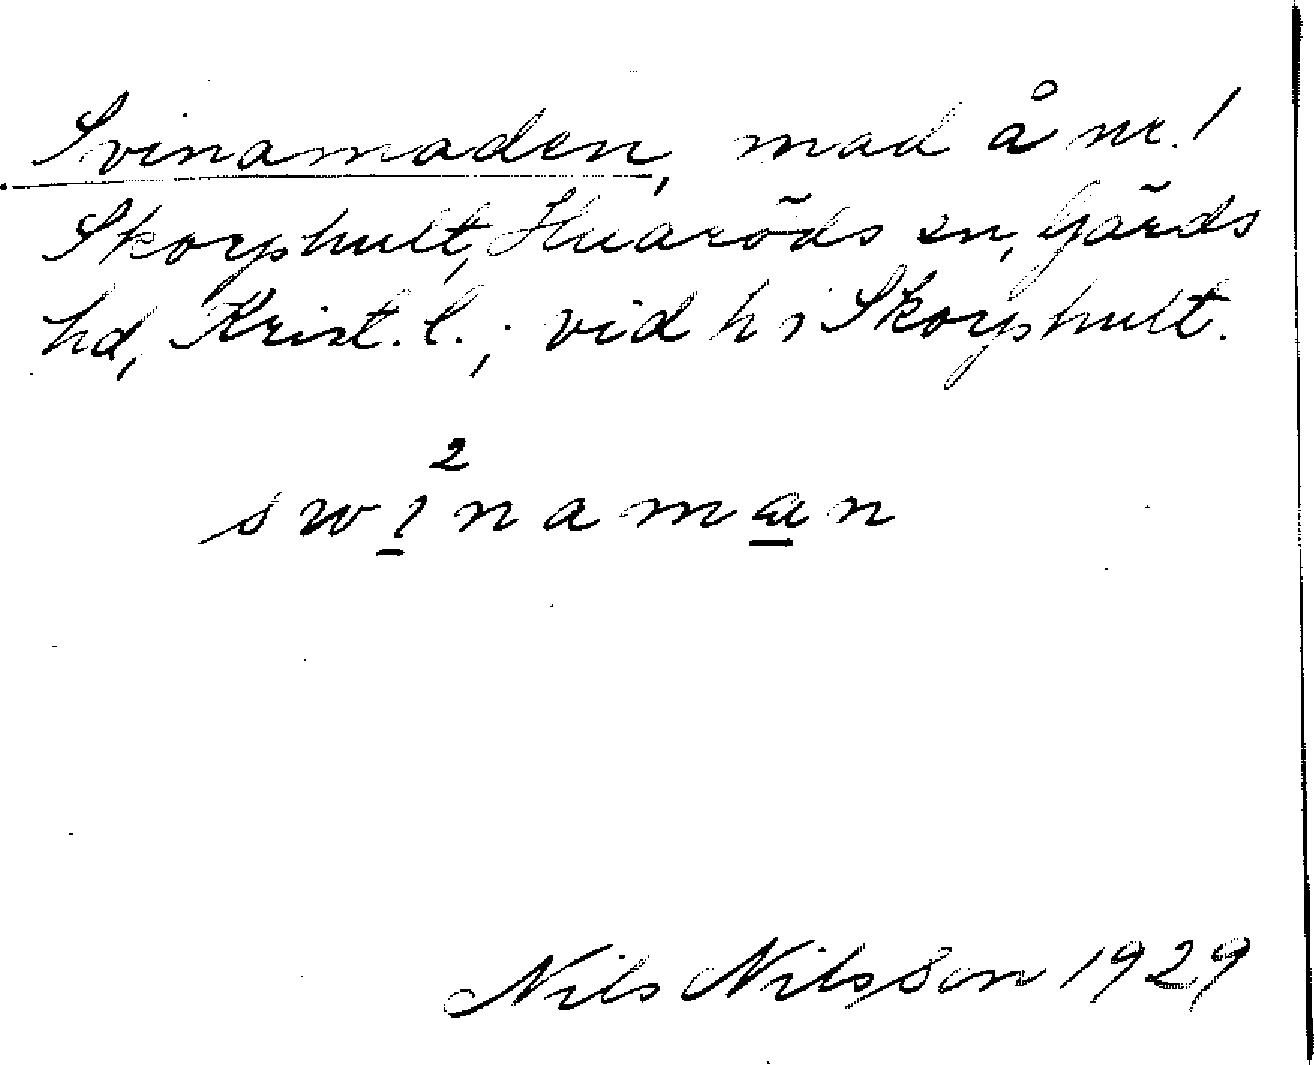 Svinamaden, mad å nr. 1
Skorphult, Huaröds sn, Gärds
hd, Krist. l.; vid h i Skorphult.
2
swınaman
Nils Nilsson 1929